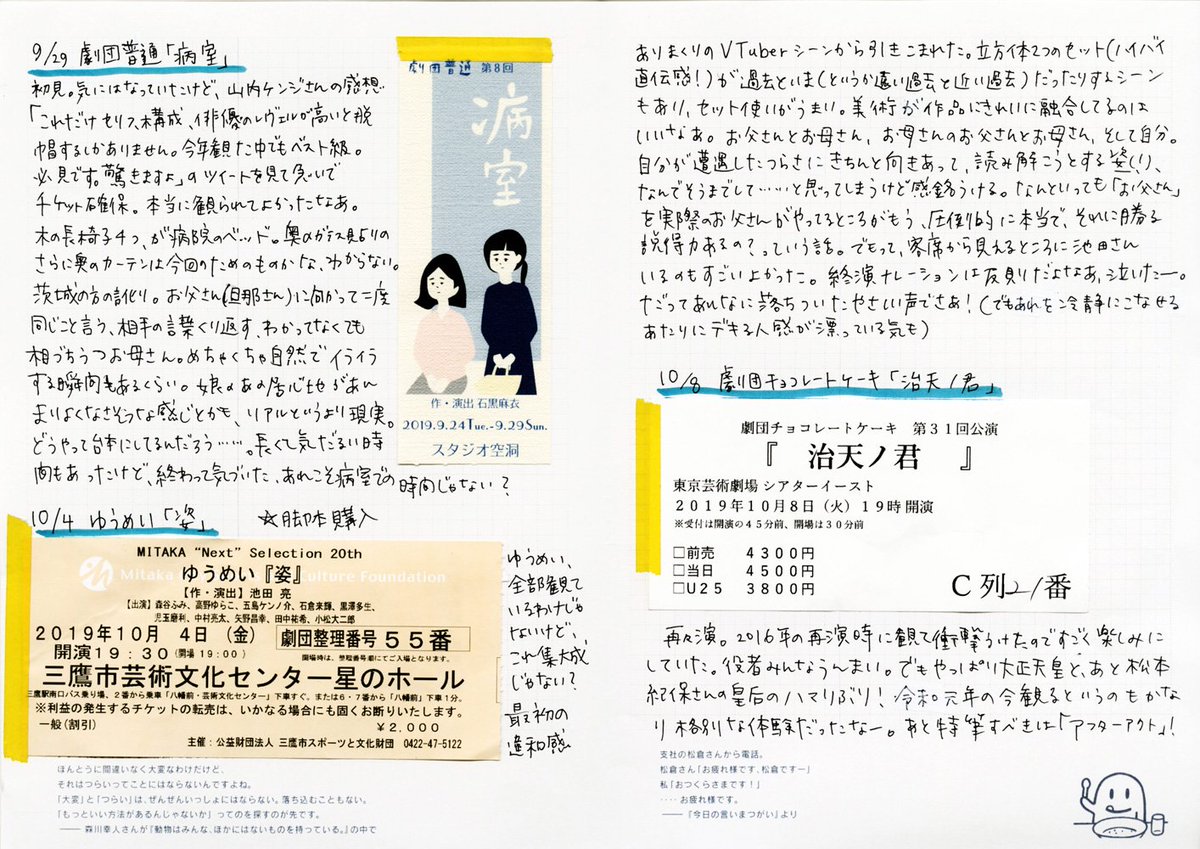 9/29 劇団普通「病室」
初見。気にはなっていたけど、山内ケンジさんの感想
「これだけセリフ、構成、俳優のレヴェルが高いと脱
帽するしかありません。今年観た中でもベスト級。
必見です。驚きますよ」のツイートを見て急いで
チケット確保。本当に観られてよかったなあ。
木の長椅子4つ、が病院のベッド。奥のガラス見切りの
さらに奥のカーテンは今回のためのものかな、わからない。
茨城の方の訛り。お父さん(旦那さん)に向かって二度
同じこと言う、相手の言葉くり返す、わかってなくても
相づちうつお母さん。めちゃくちゃ自然でイライラ
する瞬間もあるくらい。娘のあの居心地があん
まりよくなさそうな感じとかも、リアルというより現実。
どうやって台本にしてるんだろう……。長くて気だるい時
間もあったけど、終わって気づいた、あれこそ病室での時間じゃない?
劇団普通 第8回
病室
作・演出 石黒麻衣
2019.9.24Tue.-9.29Sun.
スタジオ空洞
10/4 ゆうめい「姿」 ☆脚本購入
MITAKA "Next" Selection 20th
Mitaka Culture Foundation
ゆうめい『姿』
【作・演出】池田 亮
【出演】森谷ふみ、高野ゆらこ、五島ケンノ介、石倉来輝、黒澤多生、
児玉磨利、中村亮太、矢野昌幸、田中祐希、小松大二郎
2019年10月 4日(金) 劇団整理番号 55番
開演19:30(開場 19:00) 開場時は、整理番号順にてご入場となります。
三鷹市芸術文化センター星のホール
三鷹駅南口バス乗り場、2番から乗車「八幡前・芸術文化センター」下車すぐ。または6・7番から「八幡前」下車1分。
※利益の発生するチケットの転売は、いかなる場合にも固くお断りいたします。
一般(割引) ¥2,000
主催:公益財団法人 三鷹市スポーツと文化財団 0422-47-5122
ゆうめい、
全部観て
いるわけじゃ
ないけど、
これ集大成
じゃない?
最初の
違和感
ほんとうに間違いなく大変なわけだけど、
それはつらいってことにはならないんですよね。
「大変」と「つらい」は、ぜんぜんいっしょにはならない。落ち込むこともない。
「もっといい方法があるんじゃないか」ってのを探すのが先です。
―― 森川幸人さんが『動物はみんな、ほかにはないものを持っている。』の中で
ありまくりのVTuberシーンから引きこまれた。立方体2つのセット(ハイバイ
直伝感!)が過去といま(というか遠い過去と近い過去)だったりするシーン
もあり、セット使いがうまい。美術が作品にきれいに融合してるのは
いいなあ。お父さんとお母さん、お母さんのお父さんとお母さん、そして自分。
自分が遭遇したつらさにきちんと向きあって、読み解こうとする姿(!)、
なんでそうまでして……と思ってしまうけど感銘うける。なんといっても「お父さん」
を実際のお父さんがやってるところがもう、圧倒的に本当で、それに勝る
説得力あるの?っていう話。でもって、客席から見えるところに池田さん
いるのもすごいよかった。終演ナレーションは反則だよなあ、泣いたー。
だってあんなに落ちついたやさしい声でさあ!(でもあれを冷静にこなせる
あたりにデキる人感が漂っている気も)
10/8 劇団チョコレートケーキ「治天ノ君」
劇団チョコレートケーキ 第31回公演
『 治天ノ君 』
東京芸術劇場 シアターイースト
2019年10月8日(火)19時開演
※受付は開演の45分前、開場は30分前
□前売 4300円
□当日 4500円
□U25 3800円
C列21番
再々演。2016年の再演時に観て衝撃うけたのですごく楽しみに
していた。役者みんなうんまい。でもやっぱり大正天皇と、あと松本
紀保さんの皇后のハマりぶり!令和元年の今観るというのもかな
り格別な体験だったなー。あと特筆すべきは「アフターアクト」!
支社の松倉さんから電話。
松倉さん「お疲れ様です、松倉ですー」
私「おつくらさまです!」
‥‥お疲れ様です。
――『今日の言いまつがい』より